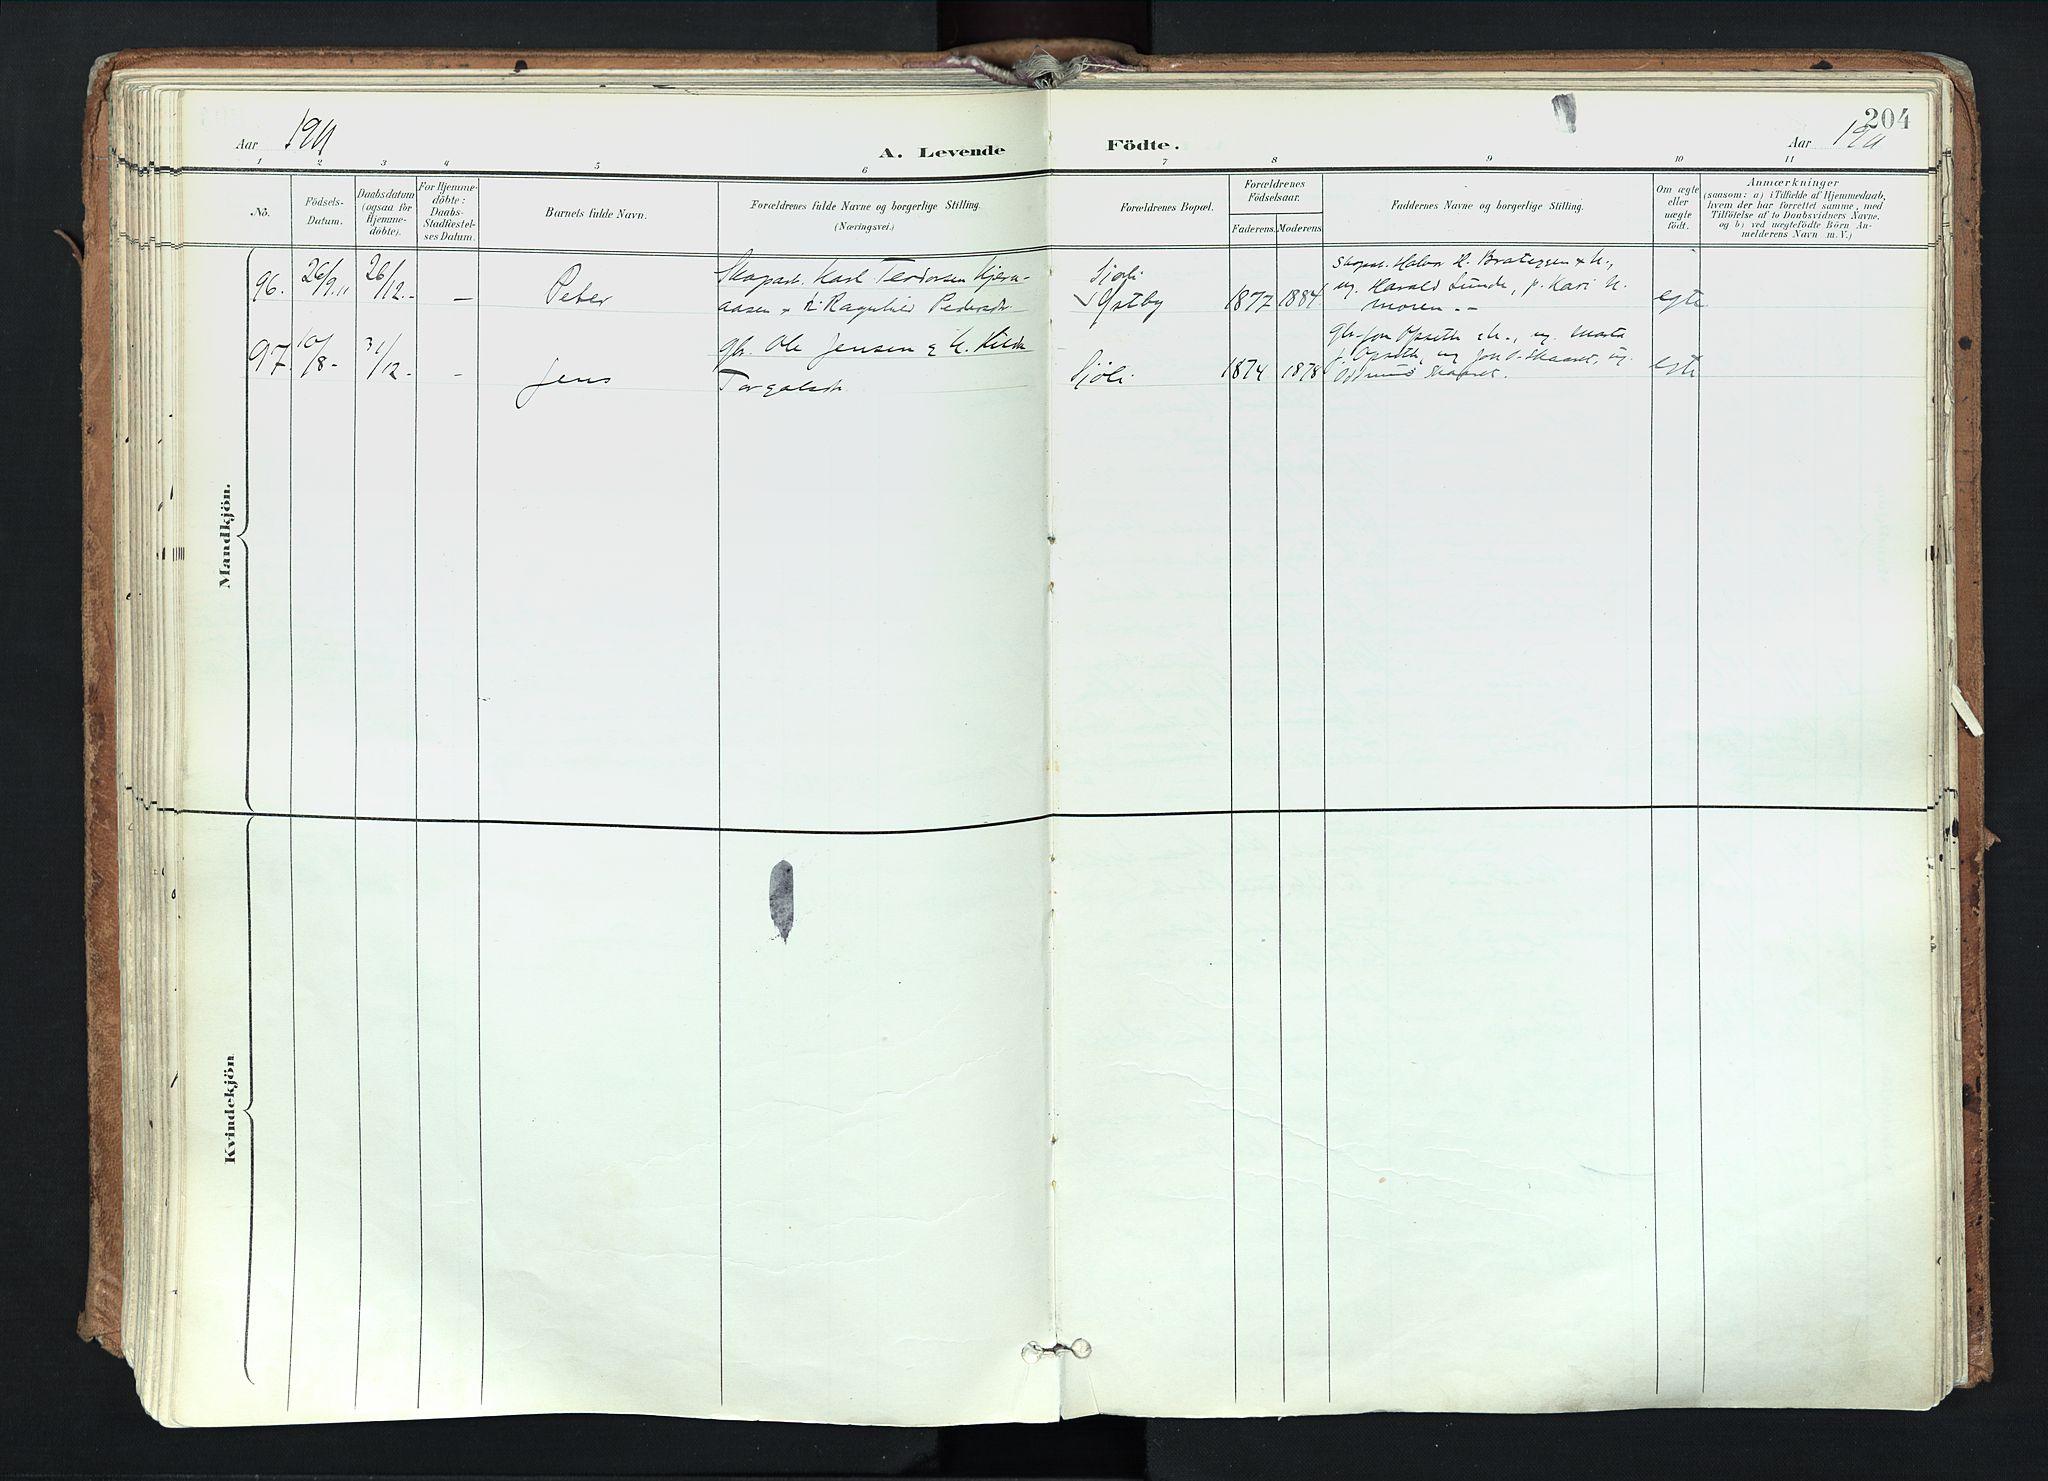 204
Aar 1911
A. Levende Födte.
Aar 1911
1 2 3 4 5 6 7 8 9 10 11
No.
Födsels-
Datum.
Daabsdatum
(ogsaa for
Hjemme-
döbte).
For Hjemme-
döbte:
Daabs-
Stadfæstel-
ses Datum.
Barnets fulde Navn.
Forældrenes fulde Navne og borgerlige Stilling.
(Næringsvei.)
Forældrenes Bopæl.
Forældrenes
Födselsaar.
Faderens. Moderens.
Faddernes Navne og borgerlige Stilling.
Om ægte
eller
uægte
födt.
Anmærkninger
(saasom: a) i Tilfælde af Hjemmedaab,
hvem der har forrettet samme, med
Tilföielse af to Daabsvidners Navne,
og b) ved uægtefödte Börn An-
melderens Navn m. V.)
Mandkjön.
96. 26/9. 11 26/12. - – Peter
Skogarb. Karl Teodorsen Kjern-
aasen & h. Ragnhild Pedersdr.
Sjøli
Østby
1877 1884
Skogarb. Halvor H. Brateggen & h.,
ug. Harald Lunde, p. Kari
moren. --
egte
97. 10/8 - 31/12. - - Jens
gbr. Ole Jensen & h.
Torgalsdr.
Sjøli.
1874 1878
gbr. Jon Opseth & h., ug. Marta
J. Opseth, ug. Jon O. Skaaret, ug.
Skaaret.
egte
Kvindekjön